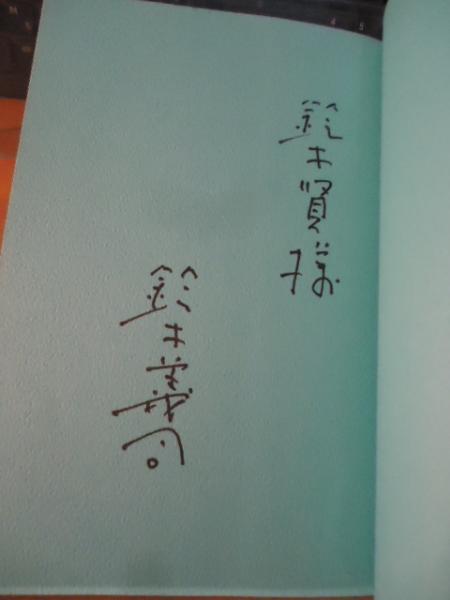 鈴木賢様
鈴木義司